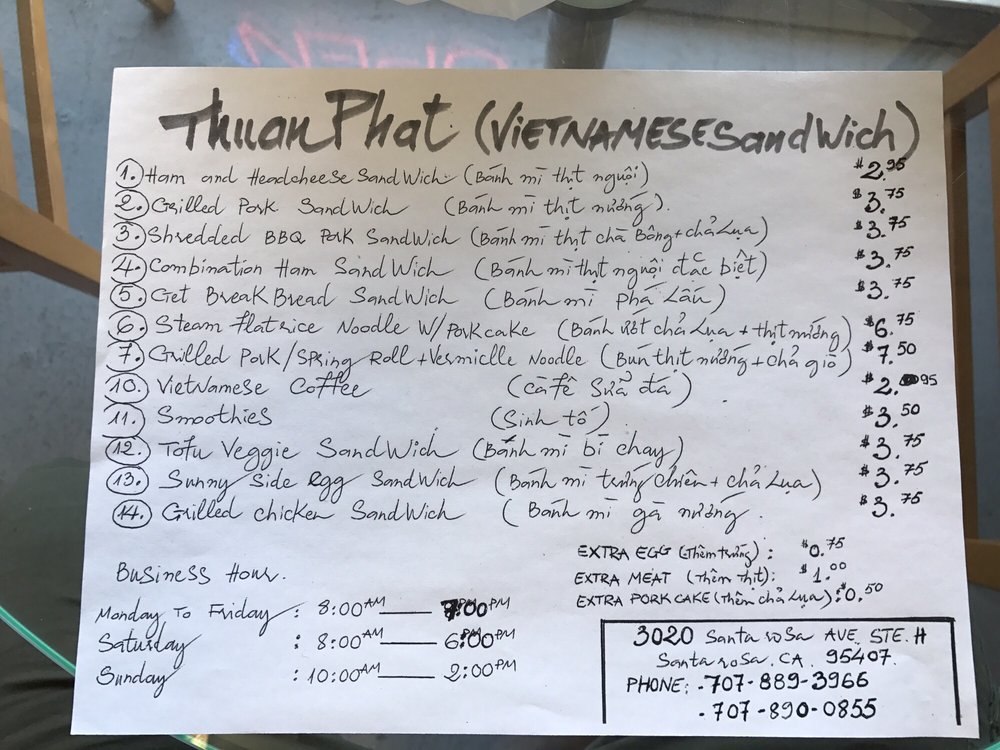 OPEN
Thuan Phat (VIETNAMESE Sandwich)
1. Ham and Headcheese Sandwich (Bánh mì thịt nguội) $2.95
2. Grilled Pork Sandwich (Bánh mì thịt nướng). $3.75
3. Shredded BBQ Pork Sandwich (Bánh mì thịt chà Bông + chả Lụa) $3.75
4. Combination Ham Sandwich (Bánh mì thịt nguội đắc biệt) $3.75
5. Get Break Bread Sandwich (Bánh mì phá Lấu) $3.75
6. Steam flat rice Noodle W/ Pork cake (Bánh ướt chả Lụa + thịt nướng) $6.75
7. Grilled Pork/Spring Roll + Vermiclle Noodle (Bún thịt nướng + chả giò) $7.50
10. Vietnamese Coffee (cà fê sữa đá) $2.95
11. Smoothies (Sinh tố) $3.50
12. Tofu Veggie Sandwich (Bánh mì bì chay) $3.75
13. Sunny Side egg Sandwich (Bánh mì trứng chiên + chả Lụa) $3.75
14. Grilled chicken Sandwich (Bánh mì gà nướng. $3.75
EXTRA EGG (Thêm trứng): $0.75
EXTRA MEAT (Thêm Thịt): $1.00
EXTRA PORK CAKE (Thêm chả Lụa): $0.50
Business Hour.
Monday To Friday : 8:00 AM — 7:00 PM
Saturday : 8:00 AM — 6:00 PM
Sunday : 10:00 AM — 2:00 PM
3020 Santa roSa AVE. STE. H
Santa roSa. CA. 95407.
PHONE: - 707-889-3966
- 707-890-0855